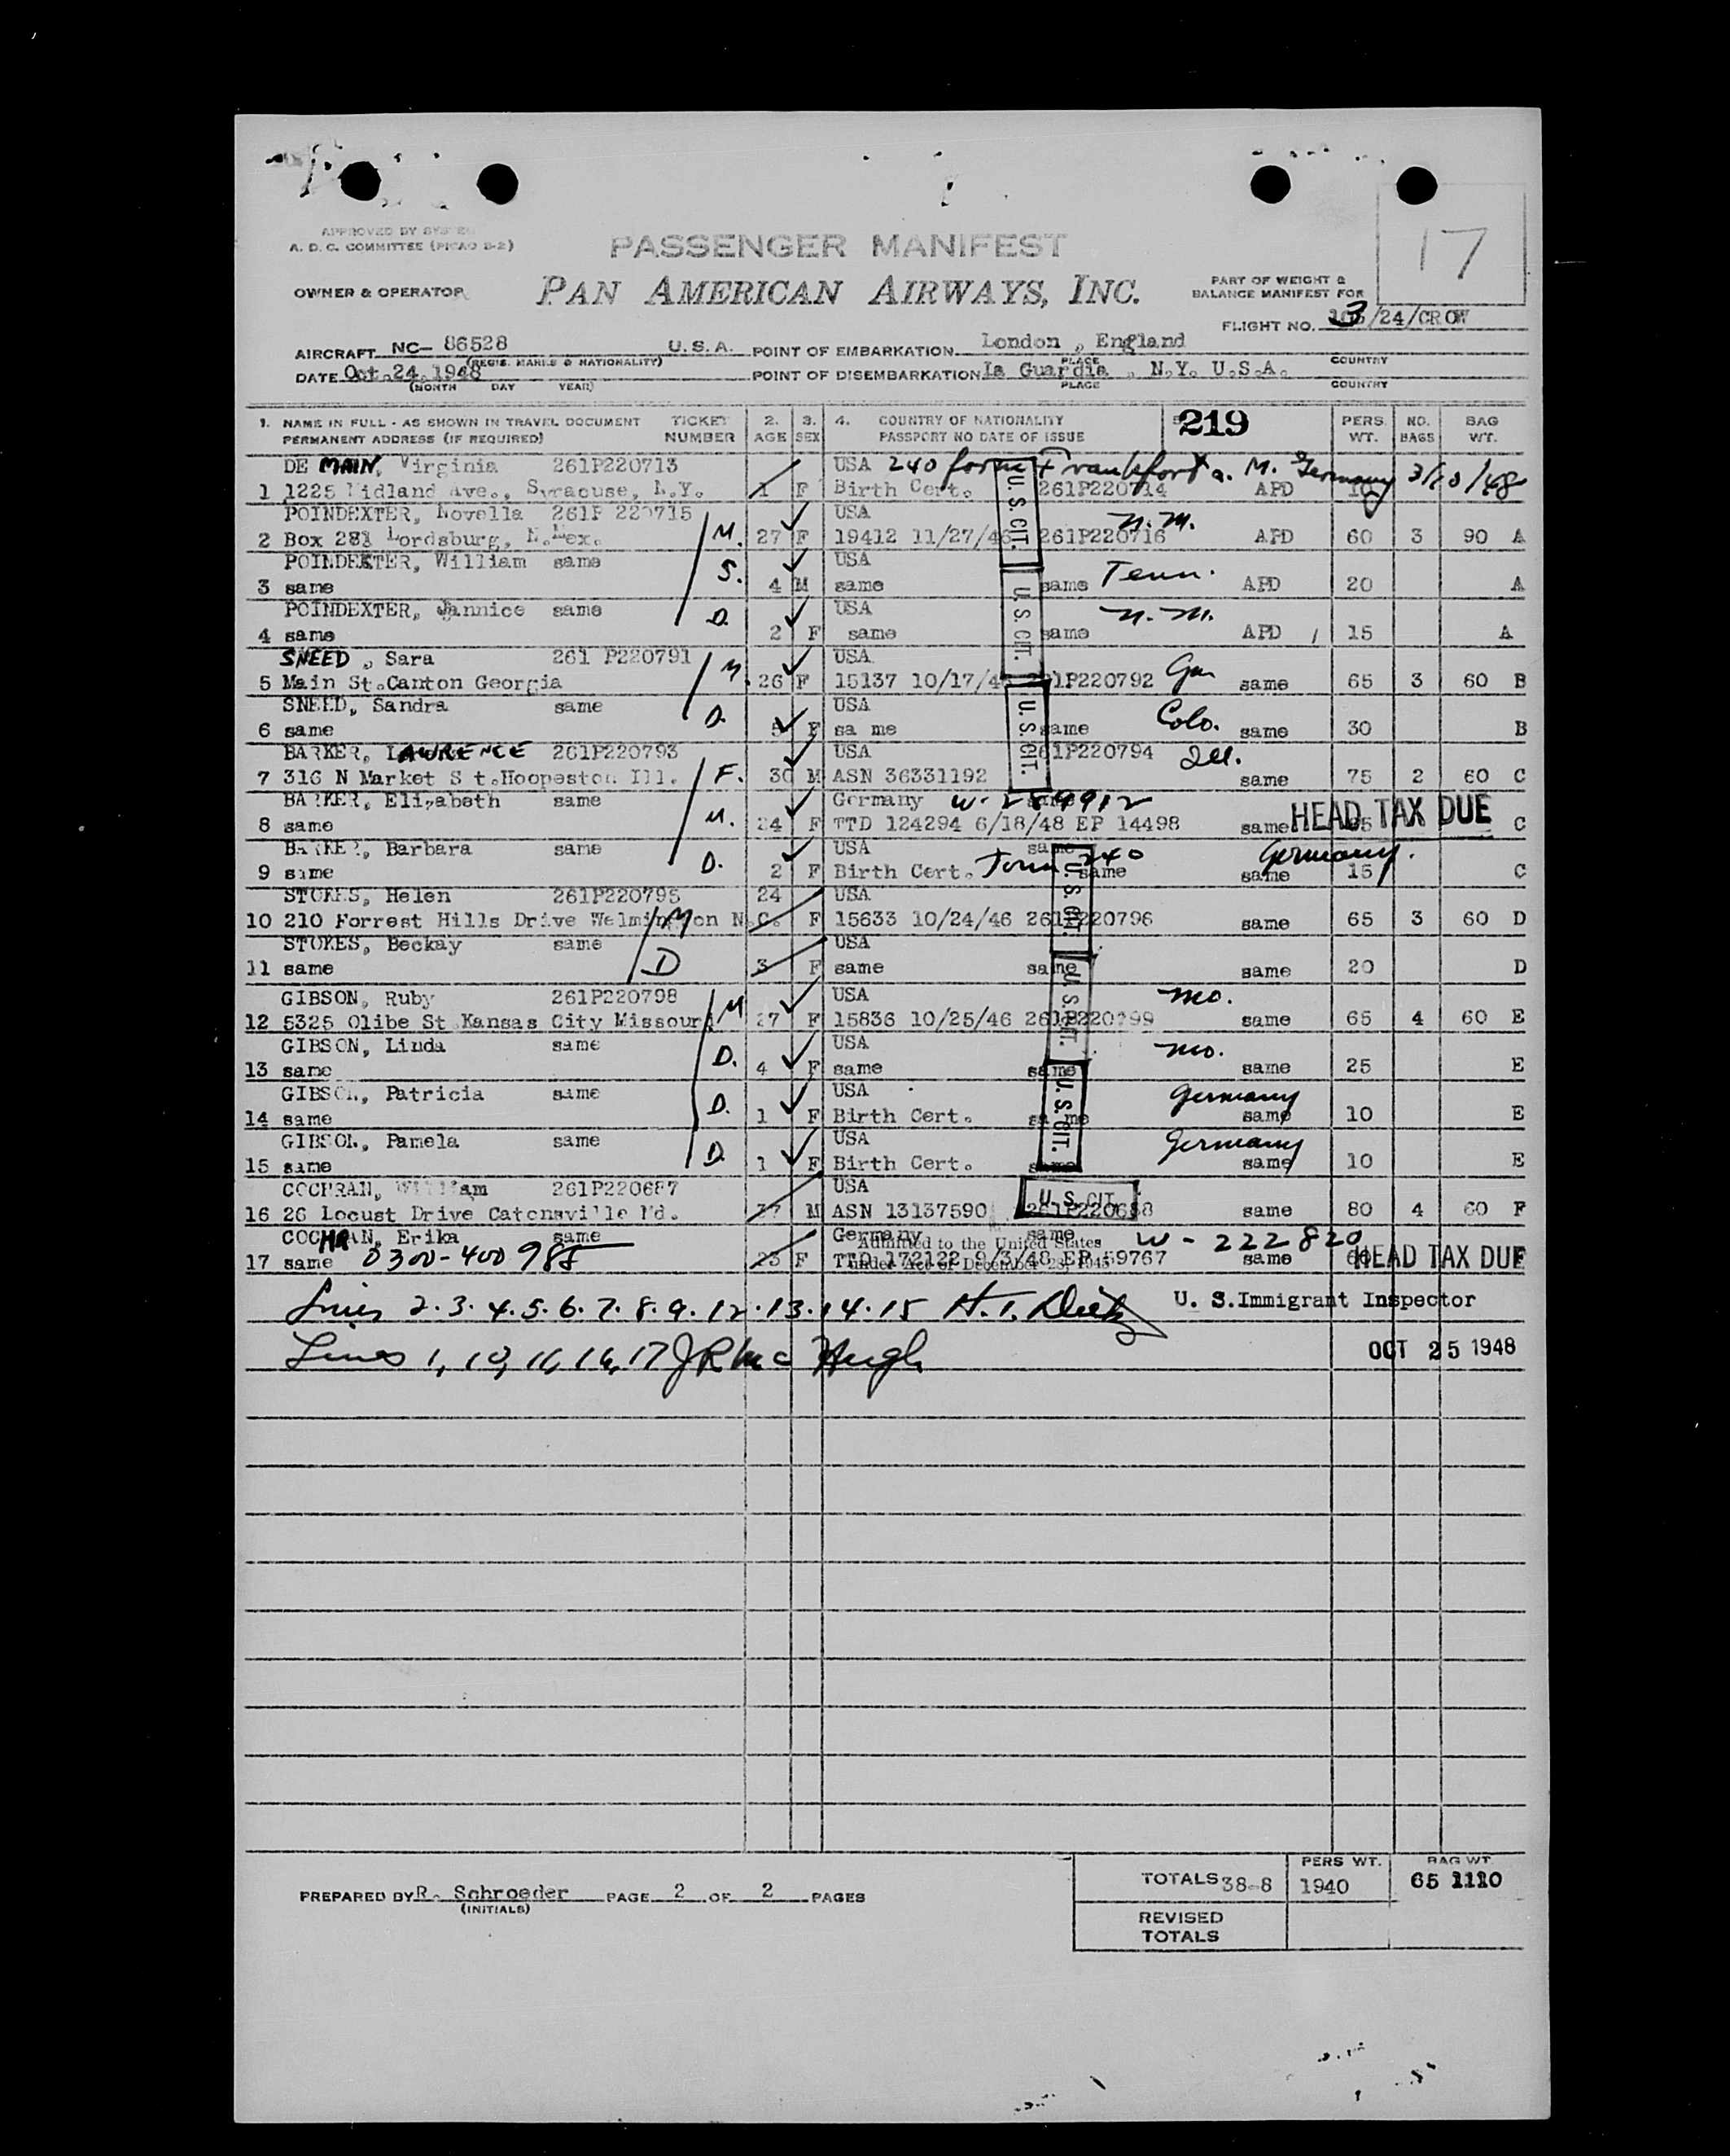 APPROVED BY SYSTEM
A. D. C. COMMITTEE (PICAO S-2)
17
PASSENGER MANIFEST
OWNER & OPERATOR
PAN AMERICAN AIRWAYS, INC.
PART OF WEIGHT &
BALANCE MANIFEST FOR
FLIGHT NO. 3/24/CROW
AIRCRAFT NC- 86528 U.S.A. POINT OF EMBARKATION London , England
(REGIS. MARKS & NATIONALITY) PLACE COUNTRY
DATE Oct.24.1948 POINT OF DISEMBARKATION La Guardia , N.Y. U.S.A.
(MONTH DAY YEAR) PLACE COUNTRY
1. NAME IN FULL - AS SHOWN IN TRAVEL DOCUMENT TICKET 2. 3. 4. COUNTRY OF NATIONALITY 219 PERS. NO. BAG
PERMANENT ADDRESS (IF REQUIRED) NUMBER AGE SEX PASSPORT NO DATE OF ISSUE WT. BAGS WT.
DE MAIN, Virginia 261P220713 USA 240 form Frankfort a. M. Germany 3/20/48
1 1225 Midland Ave., Syracuse, N.Y. 1 F Birth Cert. 261P220714 APD 10
POINDEXTER, Novella 261P 220715 USA N.M.
2 Box 283 Lordsburg, N.Mex. M. 27 F 19412 11/27/46 261P220716 APD 60 3 90 A
POINDEXTER, William same USA
3 same S. 4 M same same Tenn. APD 20 A
POINDEXTER, Jannice same USA N.M.
4 same D. 2 F same same APD 15 A
SNEED , Sara 261 P220791 USA
5 Main St.Canton Georgia M. 26 F 15137 10/17/46 261P220792 Ga same 65 3 60 B
SNEED, Sandra same USA
6 same D. 5 F sa me same Colo. same 30 B
BARKER, LAWRENCE 261P220793 USA 261P220794 Ill.
7 316 N Market S t.Hoopeston Ill. F. 30 M ASN 36331192 same 75 2 60 C
BARKER, Elizabeth same Germany W-289912
8 same M. 24 F TTD 124294 6/18/48 EP 14498 same HEAD TAX DUE C
BARKER, Barbara same USA same
9 same D. 2 F Birth Cert. Form 240 same Germany. same 15 C
STOKES, Helen 261P220795 24 USA
10 210 Forrest Hills Drive Welmington N.C. M F 15633 10/24/46 261P220796 same 65 3 60 D
STOKES, Beckay same USA
11 same D 3 F same same same 20 D
GIBSON, Ruby 261P220798 USA Mo.
12 5325 Olibe St Kansas City Missouri M 27 F 15836 10/25/46 261P220799 same 65 4 60 E
GIBSON, Linda same USA Mo.
13 same D. 4 F same same same 25 E
GIBSON, Patricia same USA Germany
14 same D. 1 F Birth Cert. same same 10 E
GIBSON, Pamela same USA Germany
15 same D. 1 F Birth Cert. same same 10 E
COCHRAN, William 261P220687 USA
16 26 Locust Drive Catonsville Md. 37 M ASN 13137590 261P220688 same 80 4 60 F
COCHRAN, Erika same Germany same W-222820
17 same 0300-400985 23 F TTD 172122 9/3/48 EP 59767 same HEAD TAX DUE
Admitted to the United States
under Act of December 28, 1945
U. S. CIT.
U. S. CIT.
U. S. CIT.
U. S. CIT.
U. S. CIT.
U. S. CIT.
U. S. CIT.
Lines 2.3.4.5.6.7.8.9.12.13.14.15 H.T. U. S.Immigrant Inspector
Lines 1, 10, 11, 16, 17 J R McHugh OCT 25 1948
PREPARED BY R. Schroeder PAGE 2 OF 2 PAGES
(INITIALS)
PERS WT. BAG WT.
TOTALS 38-8 1940 65 1110
REVISED
TOTALS